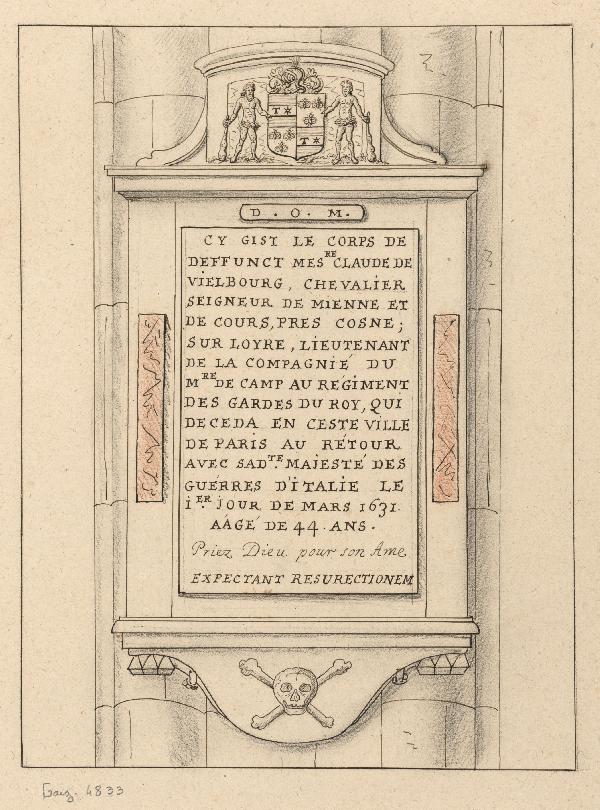 T
T
D. O. M.
CY GIST LE CORPS DE
DEFFUNCT MESRE CLAUDE DE
VIELBOURG, CHEVALIER
SEIGNEUR DE MIENNE ET
DE COURS, PRES COSNE;
SUR LOYRE, LIEUTENANT
DE LA COMPAGNIÉ DU
MRE DE CAMP AU REGIMENT
DES GARDES DU ROY, QUI
DECEDA EN CESTE VILLE
DE PARIS AU RETOUR
AVEC SADTE. MAIESTÉ DES
GUERRES D'ITALIE LE
IER JOUR DE MARS 1631.
AÀGÉ DE 44. ANS.
Priez Dieu pour son Ame
EXPECTANT RESURECTIONEM
Gaig. 4833